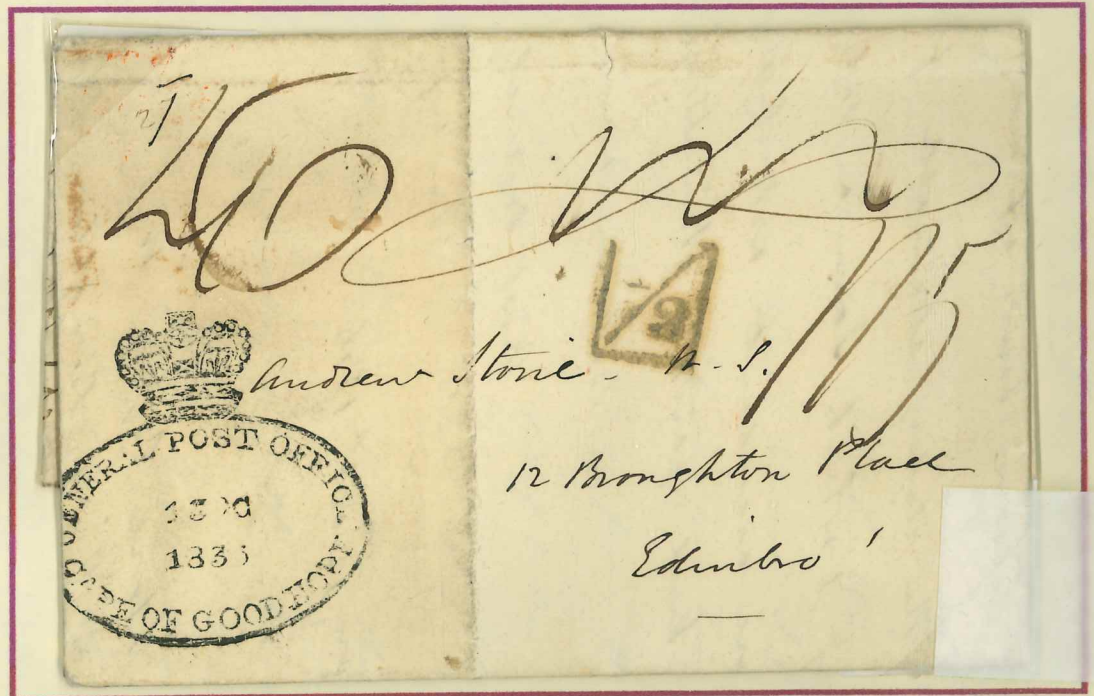 ½
Andrew Storie - W. S.
12 Broughton Place
Edinbro'
GENERAL POST OFFICE
1835
CAPE OF GOOD HOPE